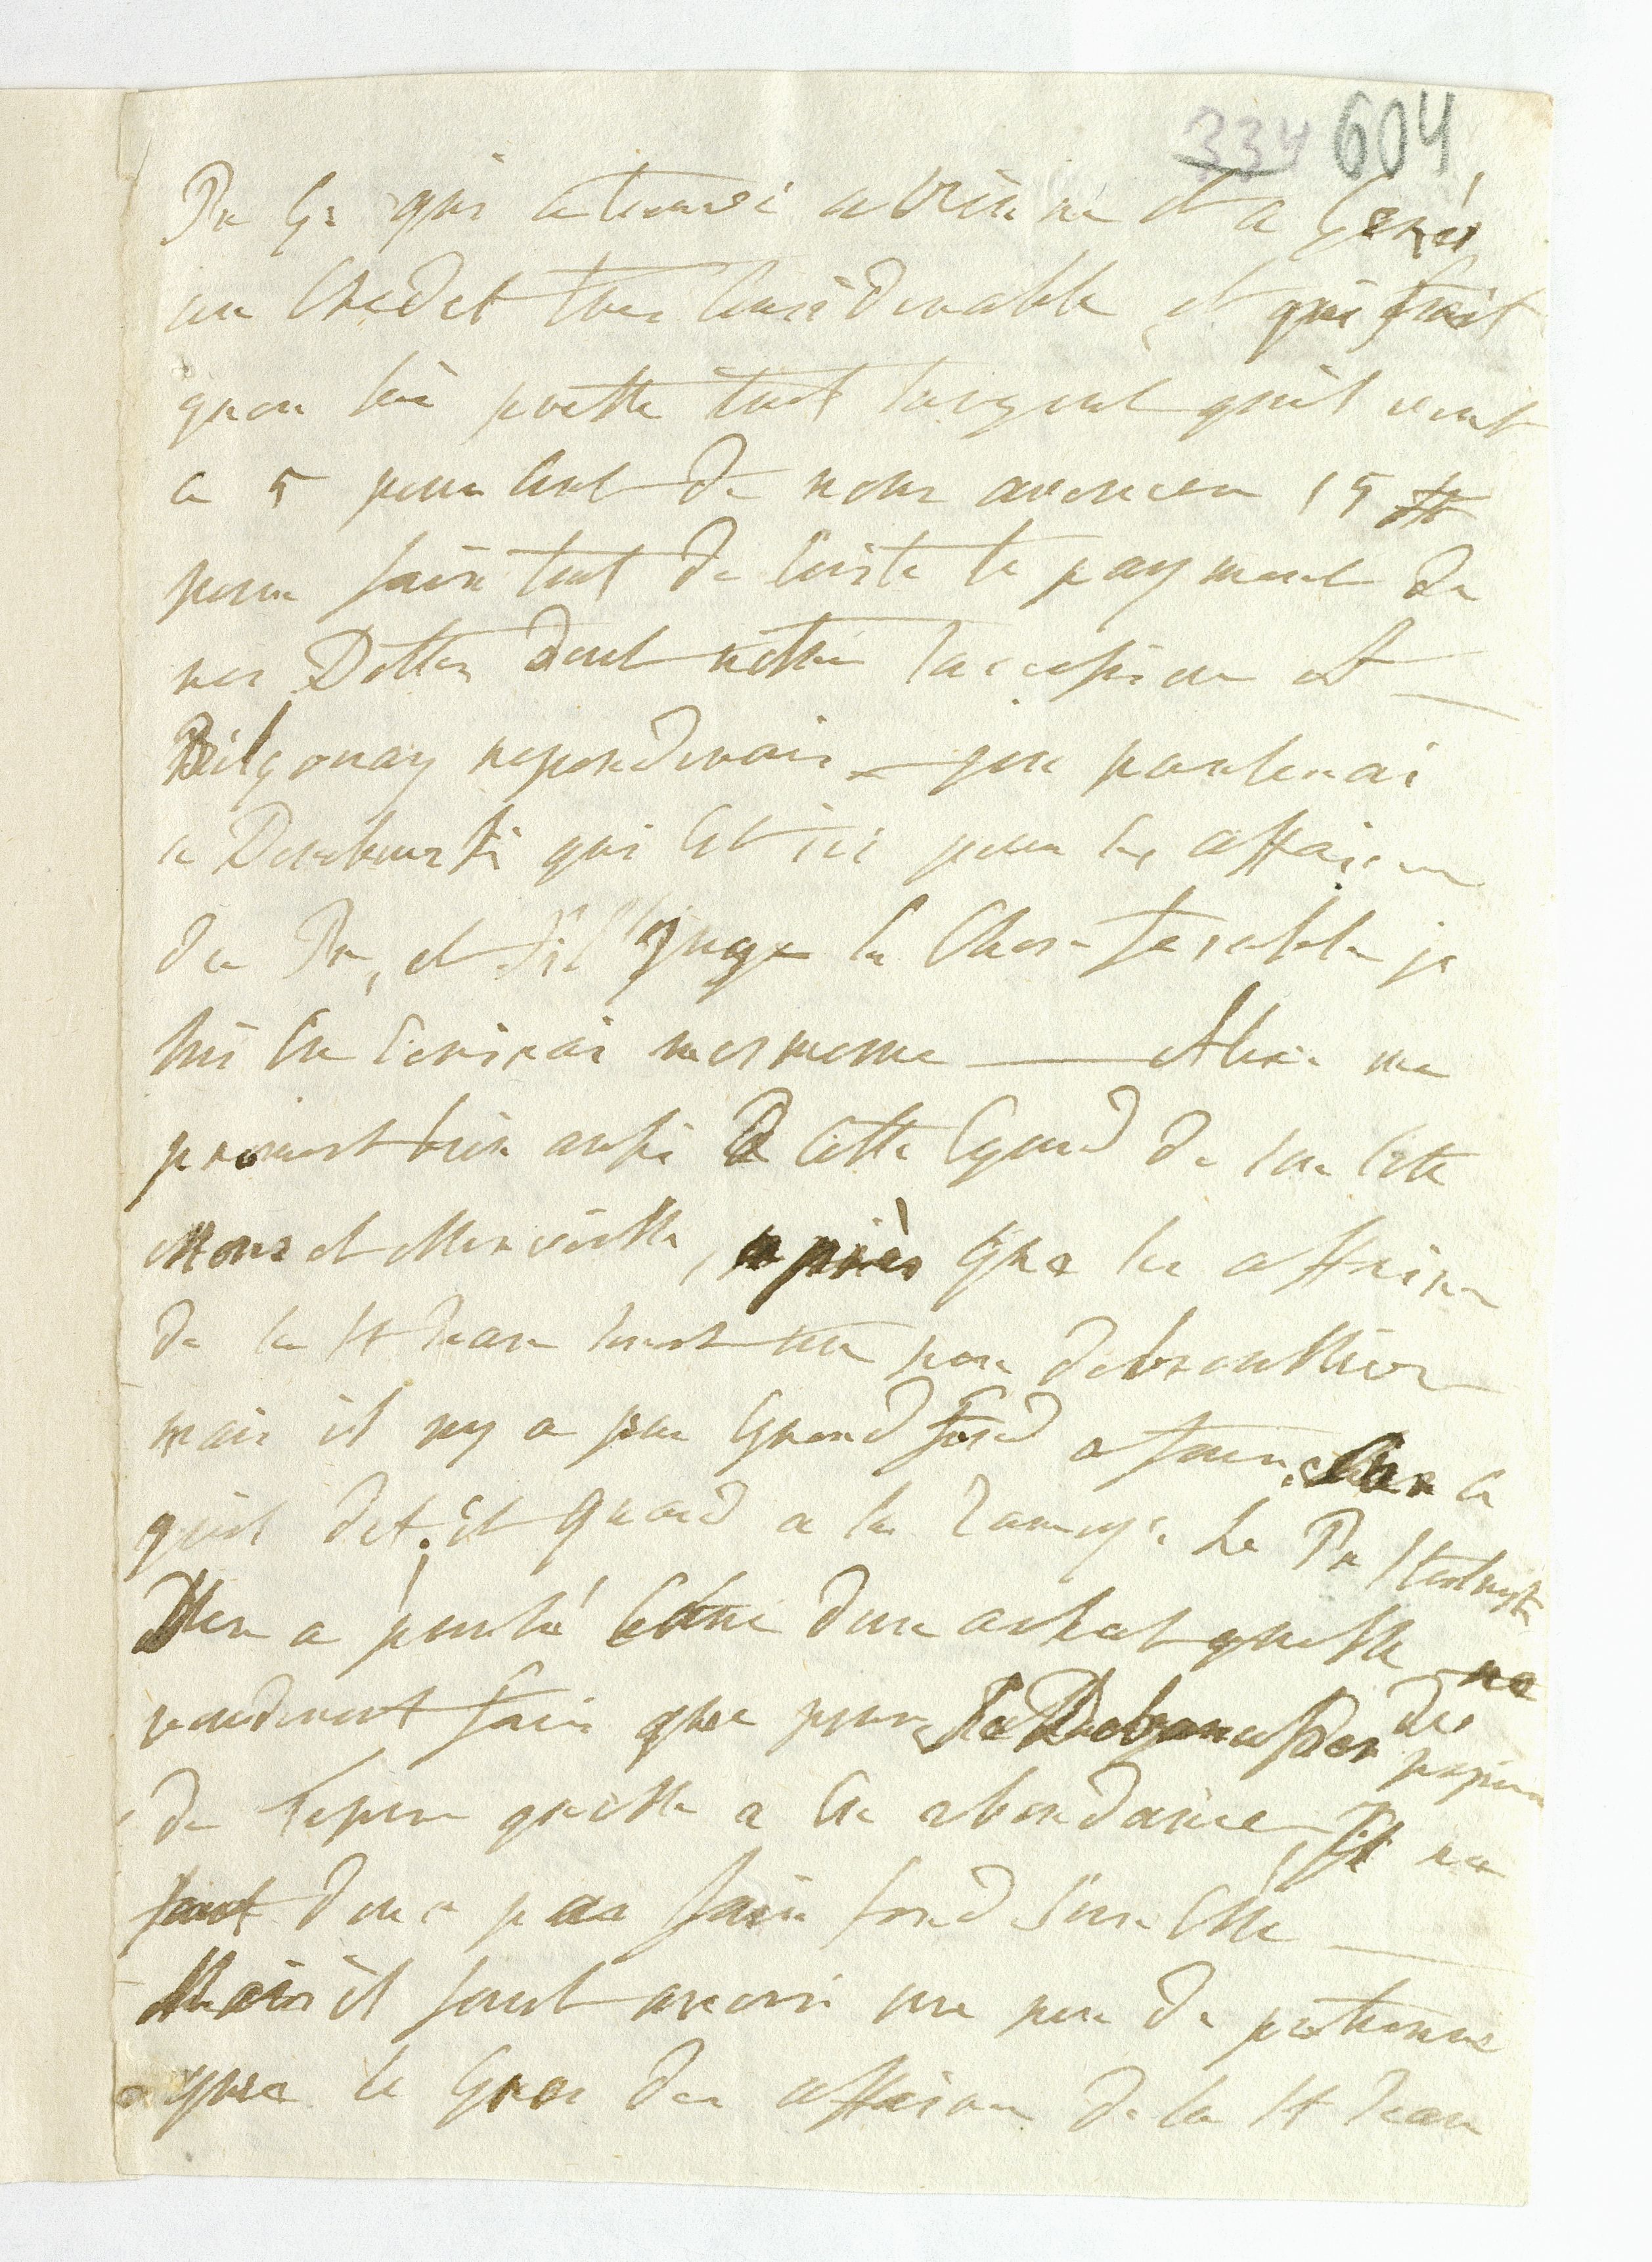 334 604
Pr Ge qui a trouvé a Vienne et a Genes
un Credet tres Considerable et qui fait
quon lui prette tout largent quil veut
a 5 pour Cent de nous avancer 15 #
pour faire tout de suite le payment de
nos Dettes dont nottre succession et
Bilgoray reponderois — jen parlerai
a Dembowski qui Est ici pour les affaires
du Pr, et s'il juge la Chose faisable je
lui En Ecrirai moi meme — Alexe me
promet bien aussi a Cette Egard de son Cotte
Mons et Merveille, après que les affaires
de la St Jean seront un peu debrouilliers
mais il ny a pas Grand fond a faire sur Ce
quil det. Et quand a la Zamoyska le Pr
Men a parlé Come dun achat quelle ne
voudroit faire que pour se Debarasser des papiers
de lespese quelle a En abondance, Il ne
faut donc pas faire fond sur Elle —
Mais il faut avoir un peu de patience
que le Gros des affaires de la St Jean